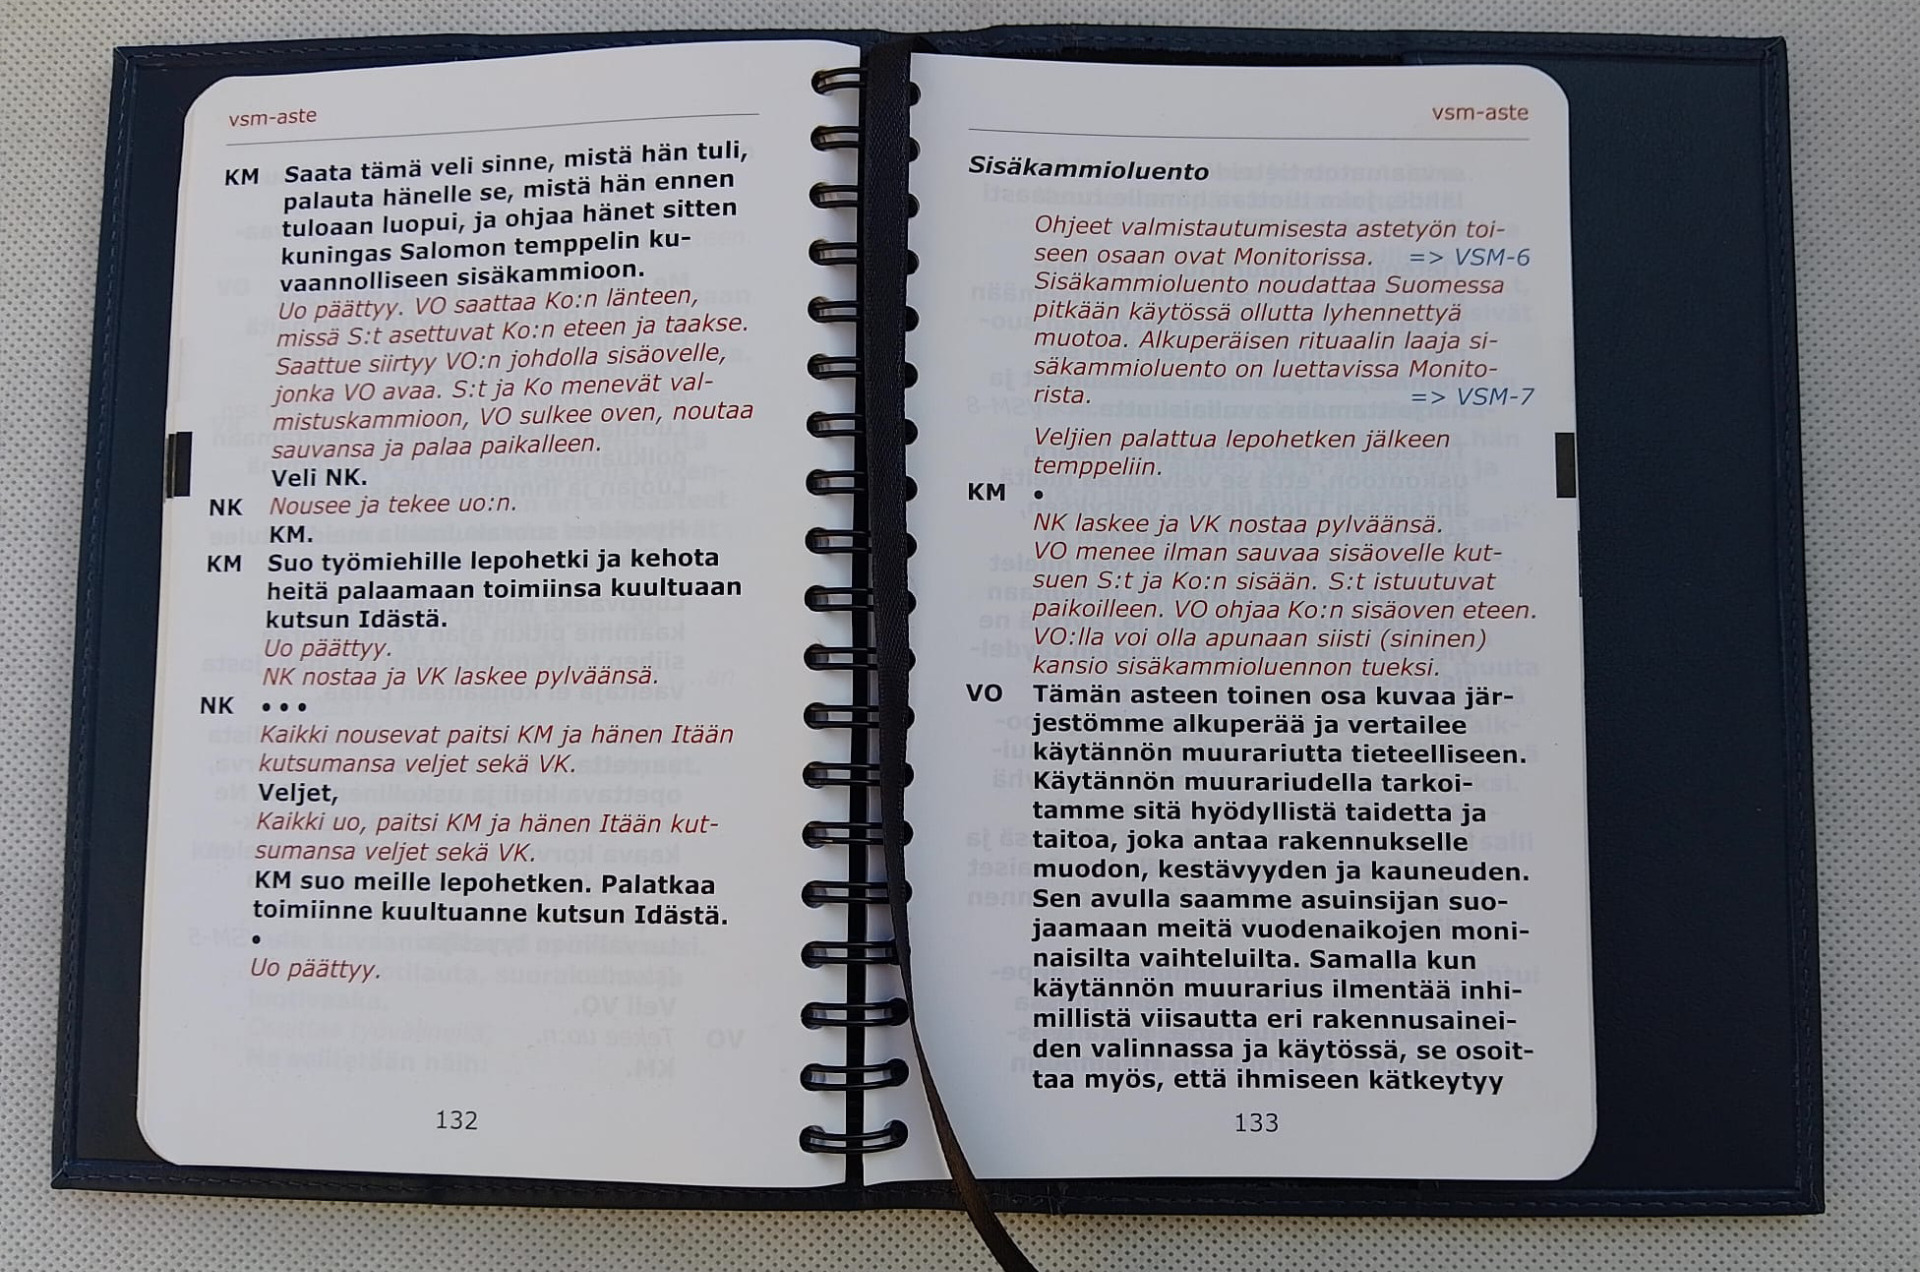 vsm-aste
KM Saata tämä veli sinne, mistä hän tuli,
palauta hänelle se, mistä hän ennen
tuloaan luopui, ja ohjaa hänet sitten
kuningas Salomon temppelin ku-
vaannolliseen sisäkammioon.
Uo päättyy. VO saattaa Ko:n länteen,
missä S:t asettuvat Ko:n eteen ja taakse.
Saattue siirtyy VO:n johdolla sisäovelle,
jonka VO avaa. S:t ja Ko menevät val-
mistuskammioon, VO sulkee oven, noutaa
sauvansa ja palaa paikalleen.
Veli NK.
NK Nousee ja tekee uo:n.
KM.
KM Suo työmiehille lepohetki ja kehota
heitä palaamaan toimiinsa kuultuaan
kutsun Idästä.
Uo päättyy.
NK nostaa ja VK laskee pylväänsä.
NK • • •
Kaikki nousevat paitsi KM ja hänen Itään
kutsumansa veljet sekä VK.
Veljet,
Kaikki uo, paitsi KM ja hänen Itään kut-
sumansa veljet sekä VK.
KM suo meille lepohetken. Palatkaa
toimiinne kuultuanne kutsun Idästä.
•
Uo päättyy.
132
vsm-aste
Sisäkammioluento
Ohjeet valmistautumisesta astetyön toi-
seen osaan ovat Monitorissa. => VSM-6
Sisäkammioluento noudattaa Suomessa
pitkään käytössä ollutta lyhennettyä
muotoa. Alkuperäisen rituaalin laaja si-
säkammioluento on luettavissa Monito-
rista. => VSM-7
Veljien palattua lepohetken jälkeen
temppeliin.
KM •
NK laskee ja VK nostaa pylväänsä.
VO menee ilman sauvaa sisäovelle kut-
suen S:t ja Ko:n sisään. S:t istuutuvat
paikoilleen. VO ohjaa Ko:n sisäoven eteen.
VO:lla voi olla apunaan siisti (sininen)
kansio sisäkammioluennon tueksi.
VO Tämän asteen toinen osa kuvaa jär-
jestömme alkuperää ja vertailee
käytännön muurariutta tieteelliseen.
Käytännön muurariudella tarkoi-
tamme sitä hyödyllistä taidetta ja
taitoa, joka antaa rakennukselle
muodon, kestävyyden ja kauneuden.
Sen avulla saamme asuinsijan suo-
jaamaan meitä vuodenaikojen moni-
naisilta vaihteluilta. Samalla kun
käytännön muurarius ilmentää inhi-
millistä viisautta eri rakennusainei-
den valinnassa ja käytössä, se osoit-
taa myös, että ihmiseen kätkeytyy
133